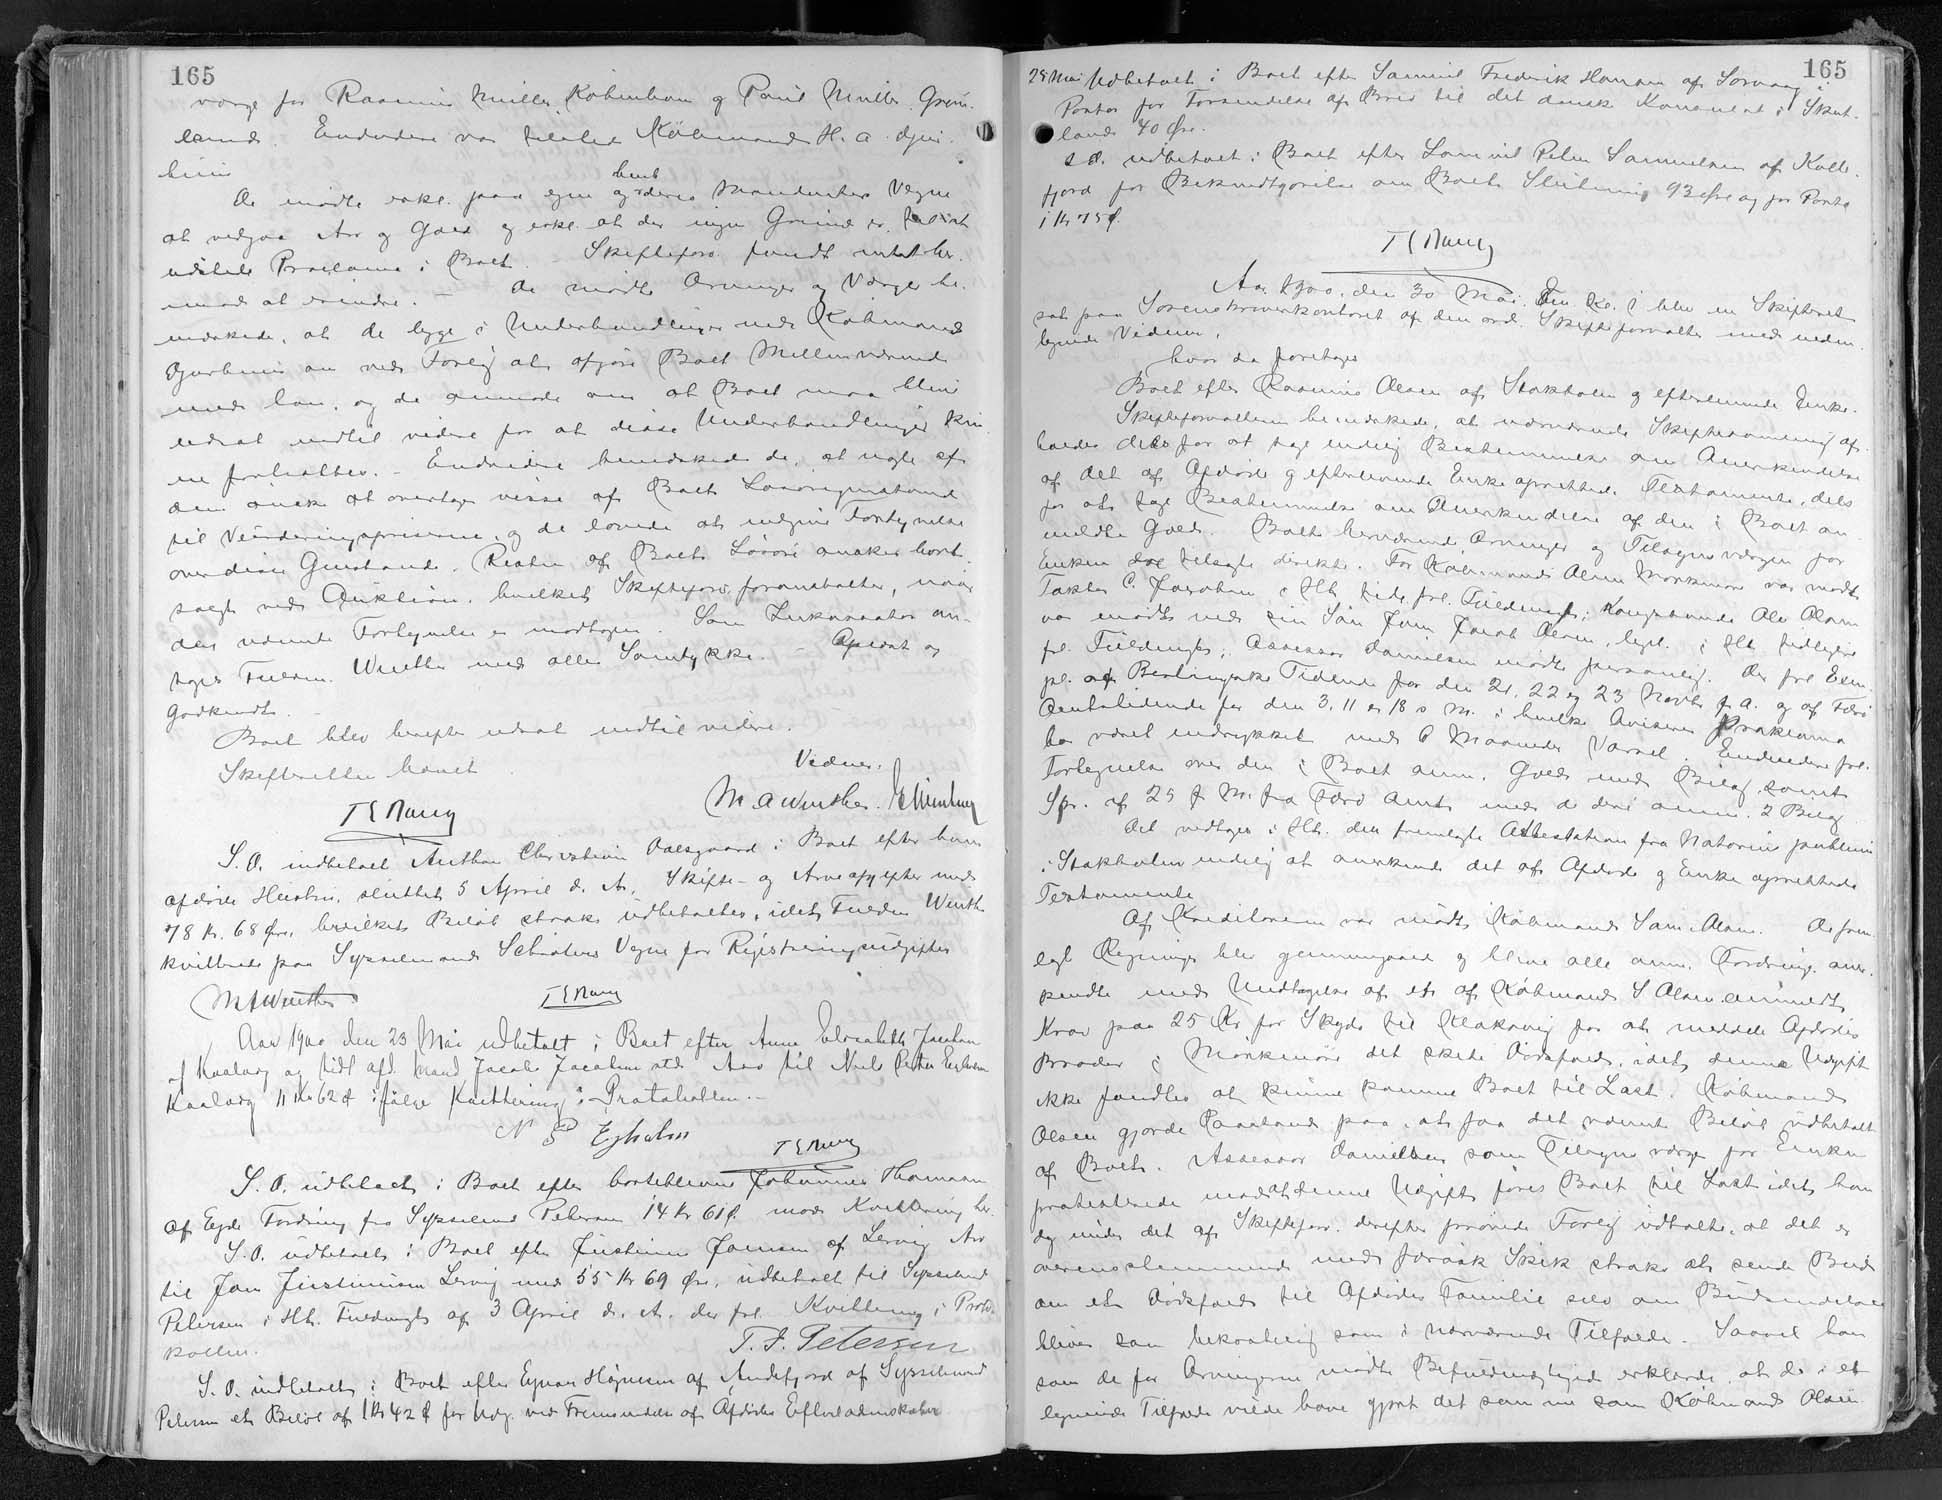 165
værge for Rasmus Müller København og Poul Müller Grøn-
land. Endvidere var tilsted Købmand H. a. djur-
huus
De mødte erkl. paa egne og deres Mandanters Vegne
at vedgaa Arv og Gæld og erkl. at der ingen Grund er til at
udstede Proclama i Boet. - Skifteforv. fandt intet her-
imod at erindre. - De mødte Arvinger og Værger be-
mærkede, at de ligge i Underhandlinger med Købmand
Djurhuus om ved Forlig at afgøre Boets Mellemværende
med ham, og de anmode om at Boet maa blive
udsat indtil videre for at disse Underhandlinger kun-
ne fortsættes. - Endvidere bemærkede de, at nogle af
dem ønske at overtage visse af Boets Løsøregenstande
til Vurderingspriserne, og de lovede at indgive Fortegnelse
over disse Genstande. Resten af Boets Løsøre ønskes bort-
solgt ved Auktion, hvilket Skifteforv. foranstalter, naar
den nævnte Fortegnelse er modtagen. Som Inkassator an-
tages Fuldm. Winther med alles Samtykke. - Oplæst og
Godkendt.
Boet blev herefter udsat indtil videre.
Skifteretten hævet
Vidner.
M A Winther.
S. D. indbetalt Anthon Christian Dalsgaard i Boet efter hans
afdøde Hustru, sluttet 5 April d. A. Skifte- og Arveafgifter med
78 Kr. 68 Øre, hvilket Beløb straks udbetaltes, idet Fuldm Winther
kvitterede paa Sysselmand Schrøters Vegne for Registreringsudgifter
M A Winther
Aar 1900 den 23 Mai udbetalt i Boet efter Anne Elisabeth Jacobsen
af Kvalvig og tidl afd. Mand Jacob Jacobsen sds Arv til Niels Peter Egholm
Kvalvig 11 Kr 62 Ø ifølge Kvittering i Protokollen.-
N P Egholm
S. D. udbetalt i Boet efter bortblevne Johannes Thomasen
af Ejde Fordring fra Sysselmd Petersen 14 Kr 61 Ø. mod Kvittering her.
S. D. udbetalt i Boet efter Justinus Joensen af Lervig Arv
til Joen Justinussen Lervig med 55 Kr 69 Øre, udbetalt til Sysselmd
Petersen i Hh. Fuldmagt af 3 April d. A. der frl. Kvittering i Proto-
kollen.
T. F. Petersen
S. D. indbetalt i Boet efter Ejnar Højnesen af Andefjord af Sysselmand
Petersen et Beløb af 1 Kr 42 Ø for Udg. ved Fremsendelse af Afdødes Efterladenskaber
165
25 Mai Udbetalt i Boet efter Samuel Frederik Hansen af Sorvaag i
Porto for Forsendelse af Brev til det danske Konsulat i Skot-
land 40 Øre.
S D. udbetalt i Boet efter Samuel Peter Samuelsen af Kolle-
fjord for Bekendtgørelse om Boets Slutning 93 Øre og for Porto
1 Kr 75 Ø.
Aar 1900, den 30 Mai. Em Kl. 1 blev en Skifteret
sat paa Sorenskriverkontoret af den ord. Skifteforvalter med neden-
tegnede Vidner,
hvor da foretoges
Boet efter Rasmus Olsen af Stokholm og efterlevende Enke.
Skifteforvalteren bemærkede, at nærværende Skiftesamling af-
holdes dels for at tage endelig Bestemmelse om Anerkendelse
af det af Afdøde og efterlevende Enke oprettede Testamente, dels
for at tage Bestemmelse om Anerkendelse af den i Boet an-
meldte Gæld. Boets herværende Arvinger og Tilsynsværgen for
Enken ere tilsagte direkte. For Købmand Olsen Morskranes var mødt
Takter C. Jacobsen i Hh. tidl. frl. Fuldmagt; Kongsbonde Ole Olsen
var mødt ved sin Søn Joen Jacob Olsen, legit. i Hh. tidligere
frl. Fuldmagt; Assessor Danielsen mødte personlig. Der frl Exm.
af Berlingske Tidende for den 21, 22 og 23 Novbr f. A. og af Færø
Amtstidende for den 3, 11 og 18 s M. i hvilke Aviser Proklama
har været indrykket med 6 Maaneders Varsel. Endvidere frl.
Fortegnelse over den i Boet anm. Gæld med Bilag samt
Skr. af 25 f M. fra Færø Amt med de deri anm. 2 Bilag
Det vedtoges i Hh. den fremlagte Attestation fra Notarius publicus
i Stokholm endelig at anerkende det af Afdøde og Enke oprettede
Testamente
Af Kreditorerne var mødt Købmand Sam. Olsen. De frem-
lagte Regninger blev gennemgaaet og bleve alle anm. Fordringer aner-
kendte med Undtagelse af et af Købmand S Olsen anmeldt
Krav paa 25 Kr for Skyds til Klaksvig for at meddele Afdødes
Broder i Mørkmøre det skete Dødsfald, idet denne Udgift
ikke fandtes at kunne komme Boet til Last. Købmand
Olsen gjorde Paastand paa at faa det nævnte Beløb udbetalt
af Boet. Assessor Danielsen som Tilsynsværge for Enken
protesterede mod at denne Udgift føres Boet til Last idet han
og under det af Skifteforv. derefter prøvede Forlig udtalte, at det er
overensstemmende med færøsk Skik straks at sende Bud
om et Dødsfald til Afdødes Familie selv om Budsendelsen
bliver saa bekostelig som i nærværende Tilfælde. Saavel han
som de for Arvingerne mødte Befuldmægtigede erklærede, at de i et
lignende Tilfælde vilde have gjort det samme som Købmand Olsen